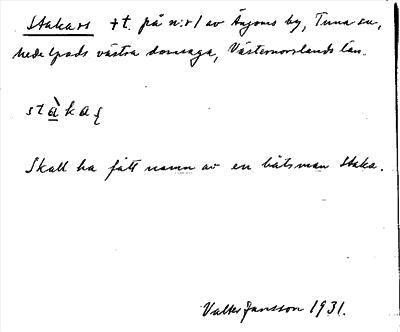 Stakars +t. på n:r 1 av Ängoms by, Tuna sn,
Medelpads västra domsaga, Västernorrlands län.
stàkaʂ
Skall ha fått namn av en båtsman Staka.
Valter Jansson 1931.